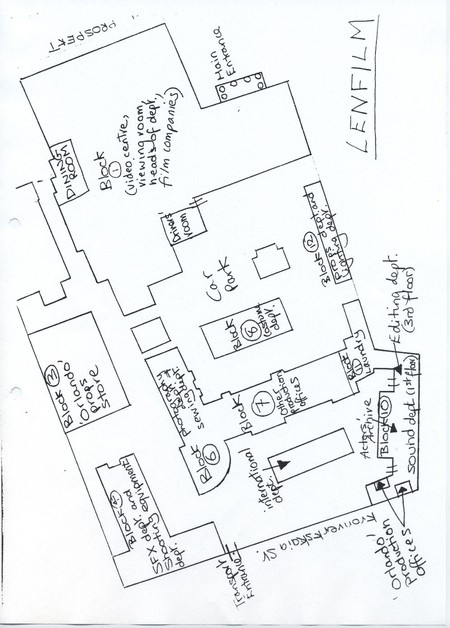 LENFILM
PROSPEKT
Main
Entrance
DINING
ROOM
Block
1
(video centre,
viewing room,
heads of dept,
film companies)
Drivers'
room
Car
Park
Block 12
Props dept. and
lighting dept.
Block
8
(costume
dept.)
Block 3
'Orlando'
Props
Store
Photography
dept.
Sewing
Block
6
Block
7
Offices
Block
11
Laundry
Editing dept.
(3rd floor)
Actors'
Archive
Block 10
sound dept (1st floor)
international
dept.
Block 4
SFX dept. and
Shooting equipment
dept.
Transport
Entrance
Konvertskaia St.
'Orlando'
Production
Offices